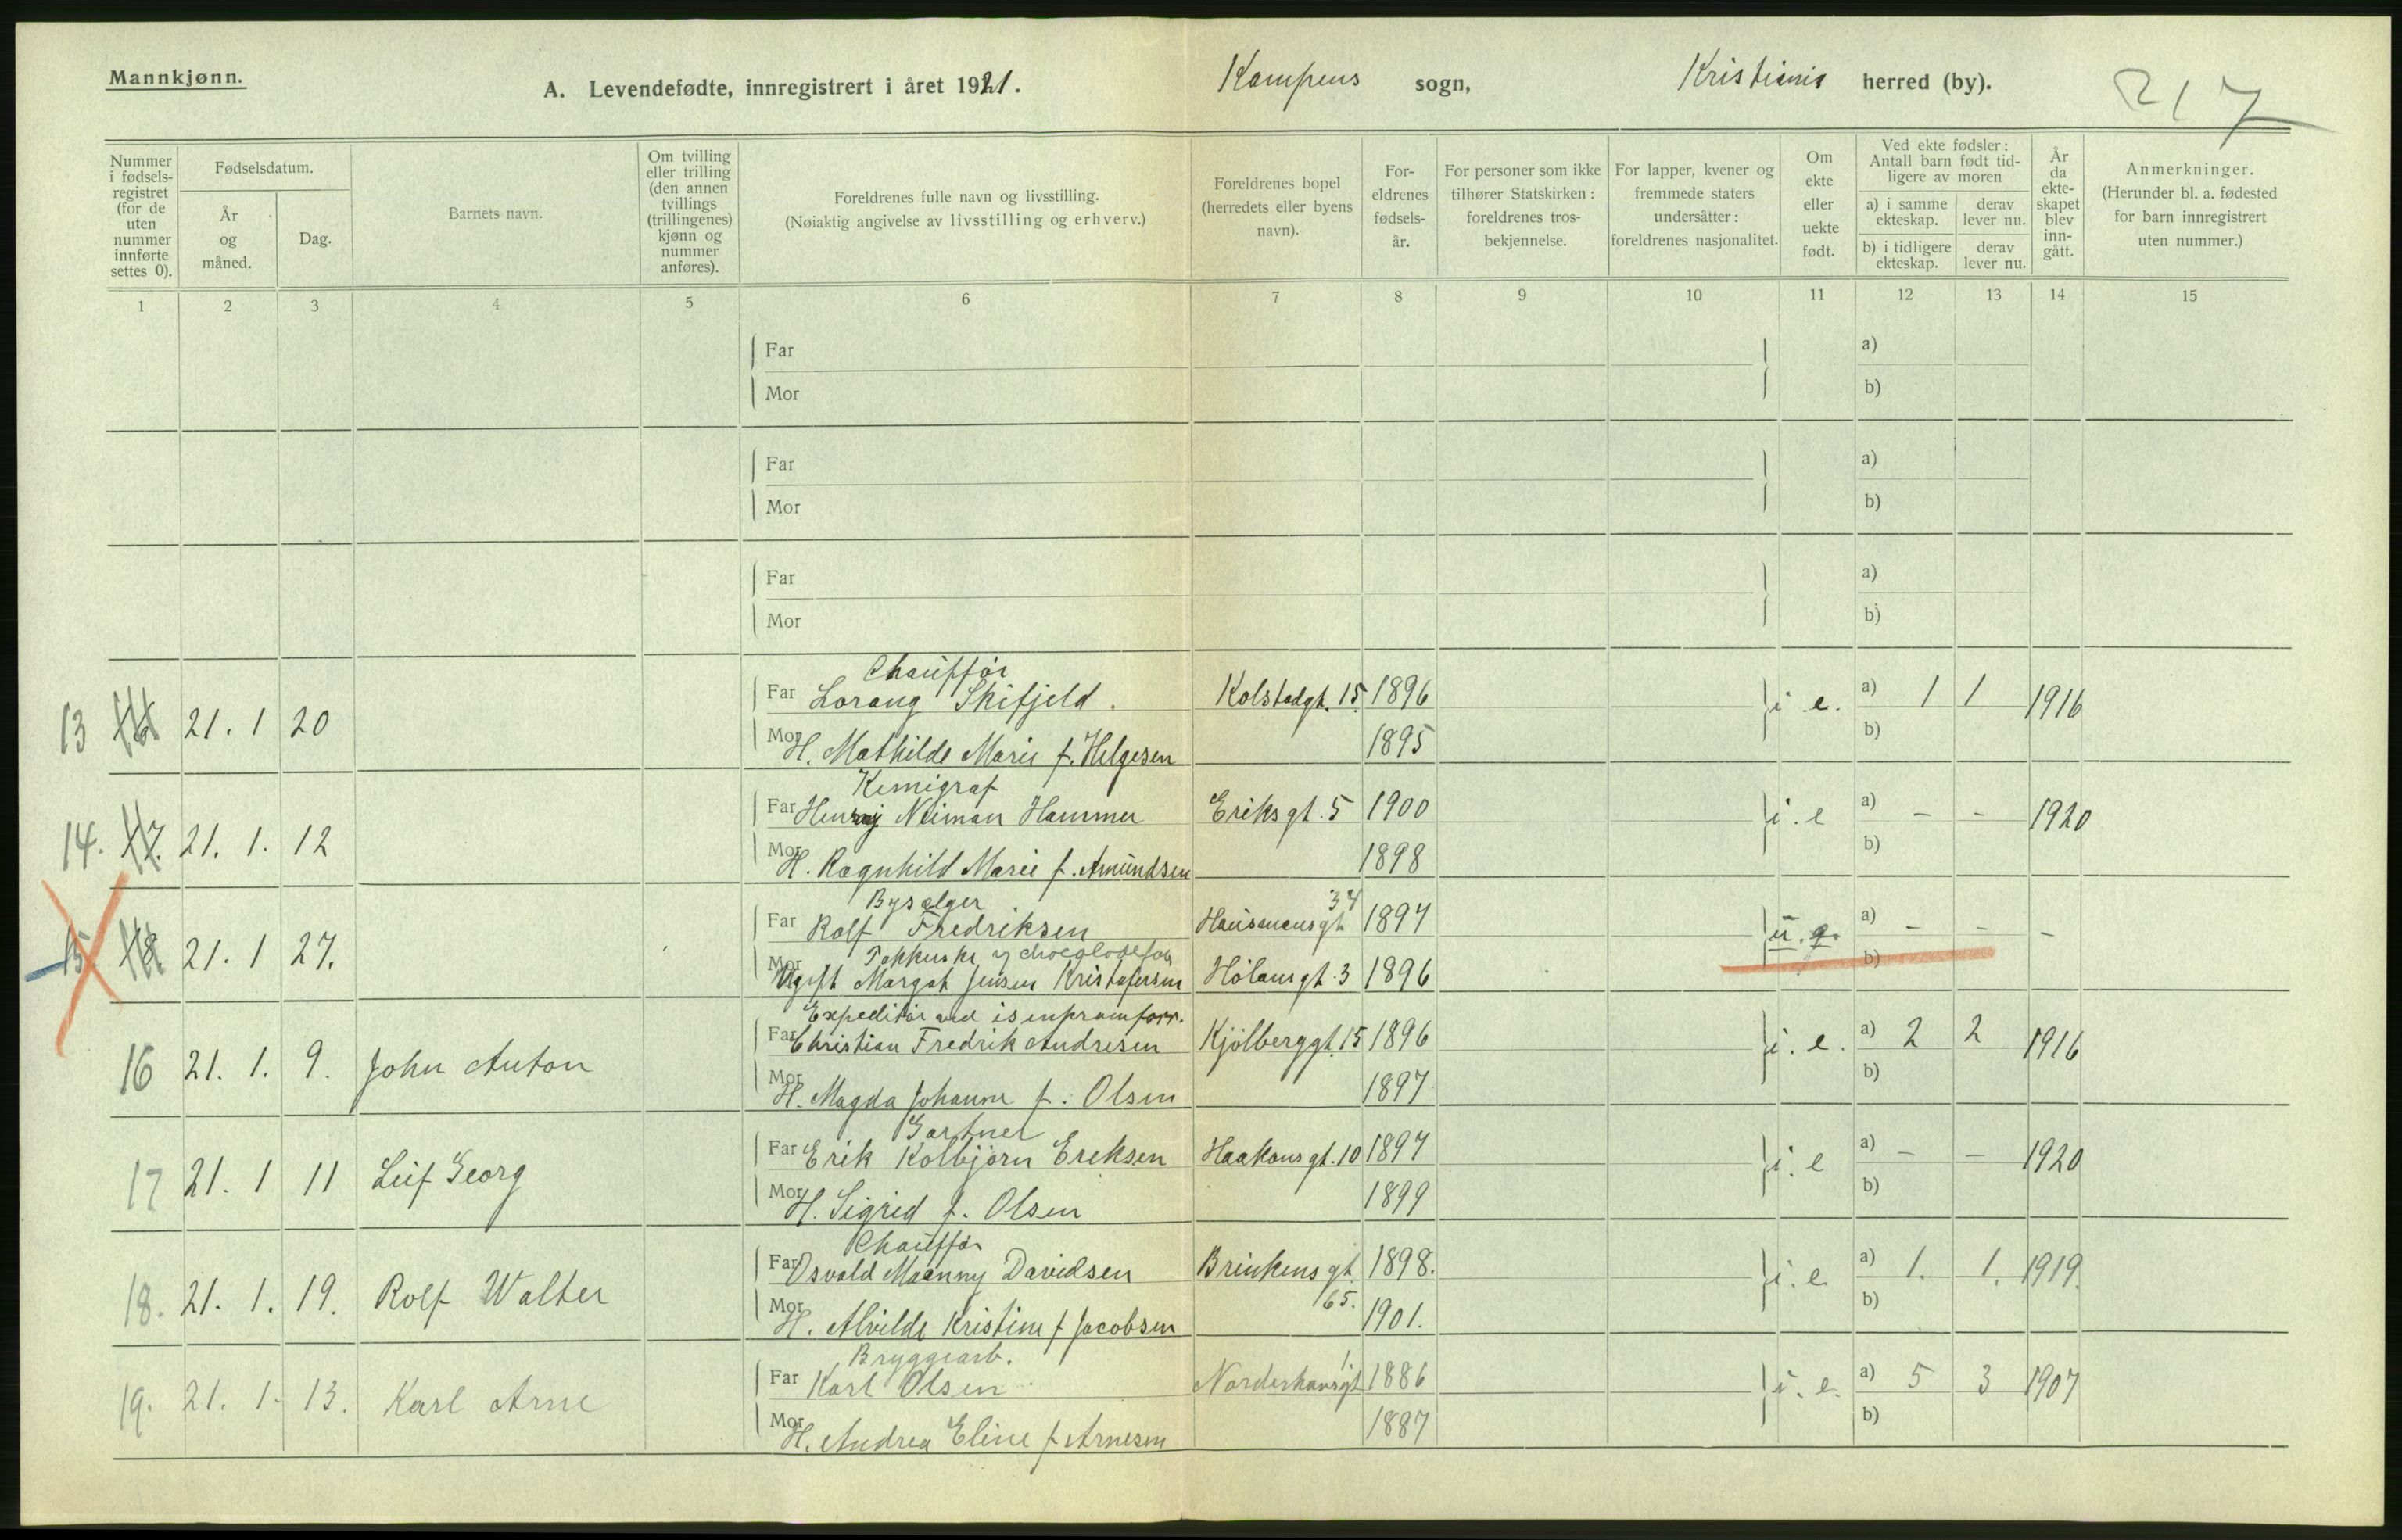 Mannkjønn.
A. Levendefødte, innregistrert i året 1921. Kampens sogn, Kristiania herred (by).
217
Nummer i fødsels-registret (for de uten nummer innførte settes 0).
Fødselsdatum.
År og måned.
Dag.
Barnets navn.
Om tvilling eller trilling (den annen tvillings (trillingenes) kjønn og nummer anføres).
Foreldrenes fulle navn og livsstilling.
(Nøiaktig angivelse av livsstilling og erhverv.)
Foreldrenes bopel (herredets eller byens navn).
For-eldrenes fødsels-år.
For personer som ikke tilhører Statskirken: foreldrenes tros-bekjennelse.
For lapper, kvener og fremmede staters undersåtter: foreldrenes nasjonalitet.
Om ekte eller uekte født.
Ved ekte fødsler: Antall barn født tid-ligere av moren
a) i samme ekteskap.
derav lever nu.
b) i tidligere ekteskap.
derav lever nu.
År da ekte-skapet blev inn-gått.
Anmerkninger.
(Herunder bl. a. fødested for barn innregistrert uten nummer.)
1 2 3 4 5 6 7 8 9 10 11 12 13 14 15
Far a)
Mor b)
Far a)
Mor b)
Far a)
Mor b)
Chauffør
13 16 21. 1 20 Far Lorang Skifjeld. Kolstadgt. 15. 1896 i e. a) 1 1 1916
Mor H. Mathilde Marie f. Helgesen 1895 b)
Kemigraf
14. 17. 21. 1. 12 Far Henry Neiman Hammer Eriksgt. 5 1900 i. e a) - - 1920
Mor H. Ragnhild Marie f. Amundsen 1898 b)
Bysælger
15 18. 21. 1 27. Far Rolf Fredriksen Hausmansgt. 34 1897 u. e. a) - - -
Mor Ugift Margot Jensen Kristofersen Hølansgt. 3 1896 b)
Expeditør ved isenkramforr.
16 21. 1. 9. John Anton Far Christian Fredrik Andresen Kjølberggt. 15 1896 i. e. a) 2 2 1916
Mor H. Magda Johanne f. Olsen 1897 b)
Gartner
17 21. 1 11 Leif Georg Far Erik Kolbjørn Ereksen Haakonsgt. 10 1897 i. e a) - - 1920
Mor H. Sigrid f. Olsen 1899 b)
Chauffør
18. 21. 1. 19. Rolf Walter Far Osvald Manny Davidsen Brinkens gt. 65. 1898. i. e a) 1. 1. 1919.
Mor H. Alvilde Kristine f Jacobsen 1901. b)
Bryggearb.
19. 21. 1. 13. Karl Arne Far Karl Olsen Norderhovsgt 1 1886 i. e. a) 5 3 1907
Mor H. Andrea Eline f Arnesen 1887 b)